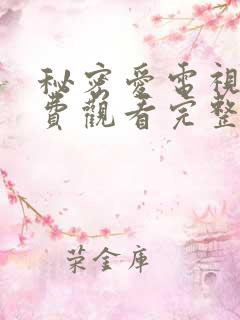 秘密愛電視
費觀看完整
荣金庫